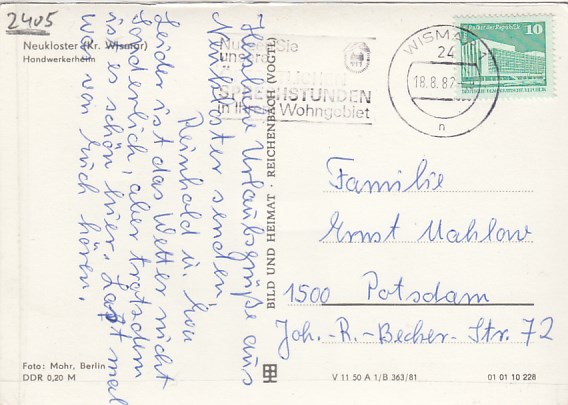 2405
Neukloster (Kr. Wismar)
Handwerkerheim
Herzliche Urlaubsgrüße aus
Neukloster senden
Reinhold u.
Leider ist das Wetter nicht
sonderlich, aber trotzdem
ist es schön hier. Laßt mal
was von Euch hören.
Foto: Mohr, Berlin
DDR 0,20 M
BILD UND HEIMAT · REICHENBACH (VOGTL)
Nutzen Sie
unsere
ÄRZTLICHEN
SPRECHSTUNDEN
in Ihrem Wohngebiet
WISMAR
24
18.8.87
n
Palast der Republik
10
DEUTSCHE DEMOKRATISCHE REPUBLIK
Familie
Ernst Mahlow
1500 Potsdam
Joh.-R.-Becher-Str. 72
V 11 50 A 1/B 363/81
01 01 10 228